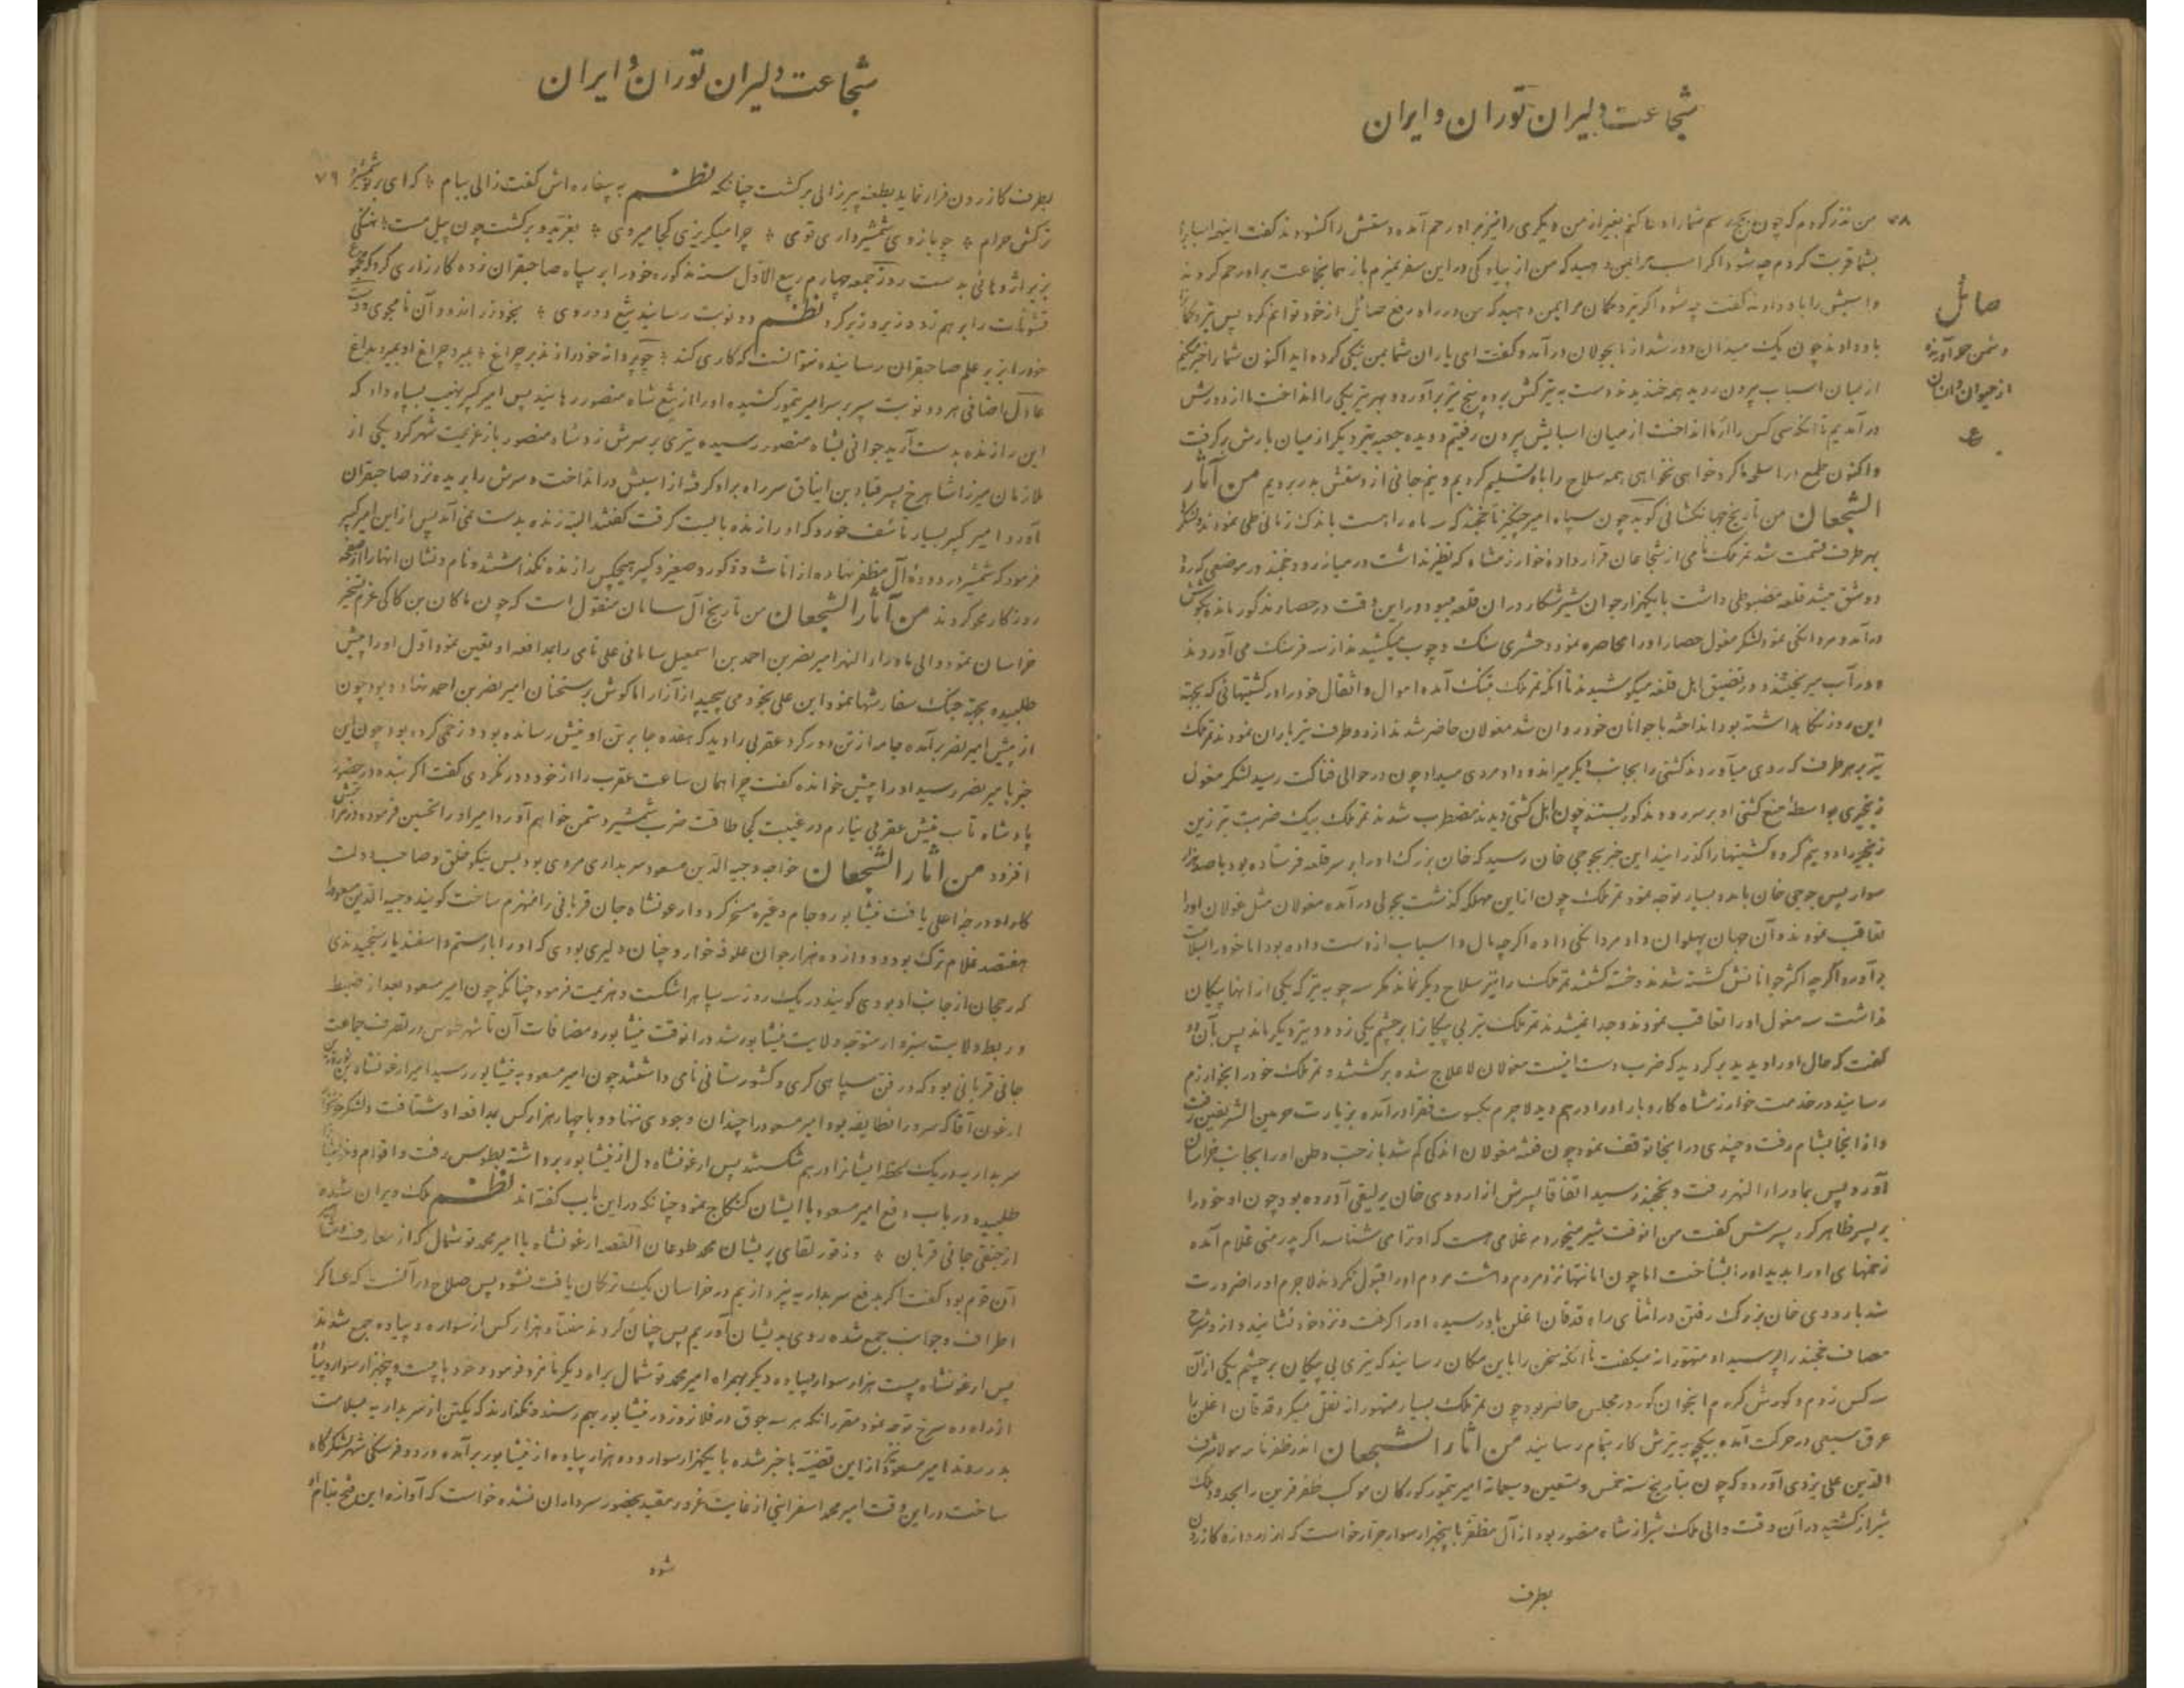 شجاعت دلیران توران و ایران
۷۸
من نذر کردم که چون بحج رسم شما را دعا کنم بغیر از من دیگری را نیز بر او رحم آمده دستش را گشودند گفت اینهمه اسبابرا
بشما قربت کردم چه شود اگر اسب مرا بمن دهید که من از پیادگی در این سفر بمیرم باز هما بجماعت بر او رحم کردند
و اسبش را باو دادند گفت چه شود اگر تیر و کمان مرا بمن دهید که من در راه دفع صائل از خود توانم کرد پس تیر و کمانرا
باو دادند چون یک میدان دور شد از ما بجولان درآمد و گفت ای یاران شما بمن نیکی کرده‌اید اکنون شما را خبر میکنم
از میان اسباب بیرون روید همه خندیدند دست به تیرکش برده پنج تیر برآورد و بهر تیر یکی را انداخت ما از دورش
درآمدیم تا آنکه سی کس را از ما انداخت از میان اسبابش بیرون رفتیم دویده جعبه تیر دیگر از میان بارش برگرفت
و اکنون طمع در اسلحه ما کرد خواهی نخواهی همه سلاح را باو تسلیم کردیم و نیم جانی از دستش بدر بردیم من آثار
الشجعان من تاریخ جهانگشائی گوید چون سپاه امیر چنگیز تا خجند که سه ماه راهست باندک زمانی طی نمودند و لشکر
بهر طرف قسمت شد تمر ملک نامی از شجاعان قرار داده خوارزمشاه که نظیر نداشت در میانه رود خجند در موضعی که رود
دو شق میشد قلعه مضبوطی داشت با یکهزار جوان شیر شکار در ان قلعه میبود در این وقت در حصار مذکور مانده بکوشش
درآمد و مردانگی نمود لشکر مغول حصار او را محاصره نمود و حشری سنگ و چوب میکشیدند از سه فرسنگ می آوردند
و در آب میریختند و در تضییق اهل قلعه میکوشیدند تا آنکه تمر ملک بتنگ آمده اموال و اثقال خود را در کشتیهائی که بجهة
این روز نگاهداشته بود انداخته با جوانان خود روان شد مغولان حاضر شدند از دو طرف تیر باران نمودند تمر ملک
تیر بر هر طرف که روی میآوردند کشتی را بجانب دیگر میراند و داد مردی میداد چون در حوالی فناکت رسید لشکر مغول
زنجیری بواسطه منع کشتی او بر سر رود مذکور بستند چون اهل کشتی دیدند مضطرب شدند تمر ملک بیک ضربت تبر زین
زنجیر را دو نیم کرد و کشتیها را گذرانید این خبر بجوجی خان رسید که خان بزرگ او را بر سر قلعه فرستاده بود با صد هزار
سوار پس جوجی خان باده بسیار توجه نمود تمر ملک چون از این مهلکه گذشت بجولی درآمده مغولان مثل غولان او را
تعاقب نمودند و آن جهان پهلوان داد مردانگی داده اگرچه مال و اسباب از دست داده بود اما خود را بسلامت
برآورد اگرچه اکثر جوانانش کشته شدند و خسته گشتند تمر ملک را نیز سلاح دیگر نماند مگر سه چوبه تیر که یکی از انها پیکان
نداشت سه مغول او را تعاقب نمودند و جدا نمیشدند تمر ملک تیر بی پیکانرا بر چشم یکی زد و دو تیر دیگر ماند پس بآن دو
گفت که حال او را دیدید برگردید که ضرب دست اینست مغولان لا علاج شده برگشتند و تمر ملک خود را بخوارزم
رسانید در خدمت خوارزمشاه کاروبار او را درهم دید لاجرم بکسوت فقرا درآمده بزیارت حرمین الشریفین رفت
و از انجا بشام رفت و چندی در انجا توقف نمود چون فتنه مغولان اندکی کم شد باز حب وطن او را بجانب خراسان
آورد و پس بماوراء النهر رفت و بخجند رسید اتفاقا پسرش از اردوی خان یرلیغی آورده بود چون او خود را
بر پسر ظاهر کرد پسرش گفت من انوقت شیر میخوردم غلامی هست که او ترا می شناسد اگر پدر منی غلام آمده
زخمهای او را بدید او را بشناخت اما چون امانتها نزد مردم داشت مردم او را قبول نکردند لاجرم او را ضرورت
شد باردوی خان بزرگ رفتن در اثنای راه قدقان اغلن باو رسیده او را گرفت و نزد خود نشانید و از او شرح
مصاف خجند را پرسید او متهورانه میگفت تا آنکه سخن را باین مکان رسانید که تیری بی پیکان بر چشم یکی از آن
سه کس زدم و کورش کردم اینجوان کور در مجلس حاضر بود چون تمر ملک بسیار متهورانه نقل میکرد قدقان اغلن را
عرق سبعی در حرکت آمده بیکچوبه تیرش کار بتمام رسانید من آثار الشجعان اندر ظفرنامه مولانا شرف
الدین علی یزدی آورده که چون بتاریخ سنه خمس و تسعین و سبعمائة امیر تیمور گورکان موکب ظفر قرین را بحدود ملک
شیراز کشید در آن وقت والی ملک شیراز شاه منصور بود از آل مظفر با پنجهزار سوار جرار خواست که از دروازه کازرون
بطرف
صائل
دشمن حمله آورنده
از حیوان و انسان
ع
شجاعت دلیران توران و ایران
۷۹
بطرف کازرون فرار نماید بطعنه پیرزالی برگشت چنانکه نظم به بیغاره اش گفت زالی ببام * که ای بر تو شمشیر و
ترکش حرام * چو بازوی شمشیرداری قوی * چرا میگریزی کجا میروی * بغرید و برگشت چون پیل مست * نهنگی
بزیر اژدهائی بدست روز جمعه چهاردهم ربیع الاول سنه مذکوره خود را بر سپاه صاحبقران زده کارزاری کرد که مجموع
قشونات را برهم زده زیر و زبر کرد نظم دو نوبت رسانید تیغ دو روی * بخود زر اندود آن نامجوی دو دست
خود را بزیر علم صاحبقران رسانیده نتوانست که کاری کند * چو پروانه خود را زند بر چراغ * نمیرد چراغ او بمیرد بداغ
عادل اختاجی هر دو نوبت سپر بر سر امیر تیمور کشیده او را از تیغ شاه منصور رهانید پس امیر کبیر نهیب بسپاه داد که
این را زنده بدست آرید جوانی بشاه منصور رسیده تیری بر سرش زد شاه منصور باز عزیمت شهر کرد یکی از
ملازمان میرزا شاهرخ پسر قباد بن ایناق سر راه بر او گرفته از اسبش در انداخت و سرش را بریده نزد صاحبقران
آورد امیر کبیر بسیار تأسف خورد که او را زنده بایست گرفت گفتند البته زنده بدست نمی آمد پس از این امیر کبیر
فرمود که شمشیر در دودهٔ آل مظفر نهاده از اناث و ذکور و صغیر و کبیر هیچکس را زنده نگذاشتند و نام و نشان انها را از صفحه
روزگار محو کردند من آثار الشجعان من تاریخ آل سامان منقول است که چون ماکان بن کاکی عزم تسخیر
خراسان نمود والی ماوراء النهر امیر نصر بن احمد بن اسمعیل سامانی علی نامی را بمدافعه او تعین نمود اول او را پیش
طلبیده بجهة جنگ سفارشها نمود این علی بخود می پیچید از آزار اما گوش بر سخنان امیر نصر بن احمد نهاده بود چون
از پیش امیر نصر برآمده جامه از تن دور کرد عقربی را دید که هفده جا بر تن او نیش رسانده بود و زخمی کرده بود چون این
خبر بامیر نصر رسید او را پیش خوانده گفت چرا همان ساعت عقرب را از خود دور نکردی گفت اگر بنده در حضور
پادشاه تاب نیش عقربی نیارم در غیبت کجا طاقت ضرب شمشیر دشمن خواهم آورد امیر او را تحسین فرموده در مراتبش
افزود من آثار الشجعان خواجه وجیه الدین مسعود سربداری مردی بود بس نیکو خلق و صاحب دولت
کار او درجهٔ اعلی یافت نیشابور و جام و غیره مسخر کرد و ارغونشاه جان قربانی را منهزم ساخت گویند وجیه الدین مسعود را
هفتصد غلام ترک بود و دوازده هزار جوان علوفه خوار و چنان دلیری بودی که او را با رستم و اسفندیار سنجیدندی
که رجحان از جانب او بودی گویند در یک روز سه سپاه را شکست و هزیمت فرمود چنانکه چون امیر مسعود بعد از ضبط
و ربط ولایت سبزوار متوجه ولایت نیشابور شد در انوقت نیشابور و مضافات آن تا شهر طوس در تصرف جماعت
جانی قربانی بود که در فن سپاهی گری و کشورستانی نامی داشتند چون امیر مسعود به نیشابور رسید امیر ارغونشاه بن نوروز بن
ارغون آقا که سرور انطایفه بود امیر مسعود را چندان وجودی ننهاد و با چهار هزار کس بمدافعه او شتافت و لشکر
سربداریه در یک لحظه ایشانرا درهم شکستند پس ارغونشاه دل از نیشابور برداشته بطوس رفت و اقوام
طلبیده در باب دفع امیر مسعود با ایشان کنکاج نمود چنانکه در این باب گفته اند نظم ملک ویران شده
از جنقی جانی قربان * وز قورلتای پریشان محمد طوغان القصه ارغونشاه با امیر محمد توشمال که از معارف
آن قوم بود گفت اگر بدفع سربداریه نپردازیم در خراسان یک ترکان یافت نشود پس صلاح در آنست که عساکر
اطراف و جوانب جمع شده روی بدیشان آوریم پس چنان کردند هفتاد هزار کس از سواره و پیاده جمع شدند
پس ارغونشاه بیست هزار سوار و پیاده دیگر بهمراه امیر محمد توشمال براه دیگر نامزد فرمود و خود با بیست و پنجهزار سوار و پیاده
از راه ده سرخ توجه نمود مقرر آنکه هر سه جوق در فلان روز در نیشابور بهم رسند و نگذارند که یکتن از سربداریه بسلامت
بدر روند امیر مسعود از این قضیه با خبر شده با یکهزار سوار و ده هزار پیاده از نیشابور برآمده در دو فرسنگی شهر لشکرگاه
ساخت در این وقت امیر محمد اسفراینی از غایت غرور مقید بحضور سرداران نشده خواست که آوازه این فتح بنام او
شود